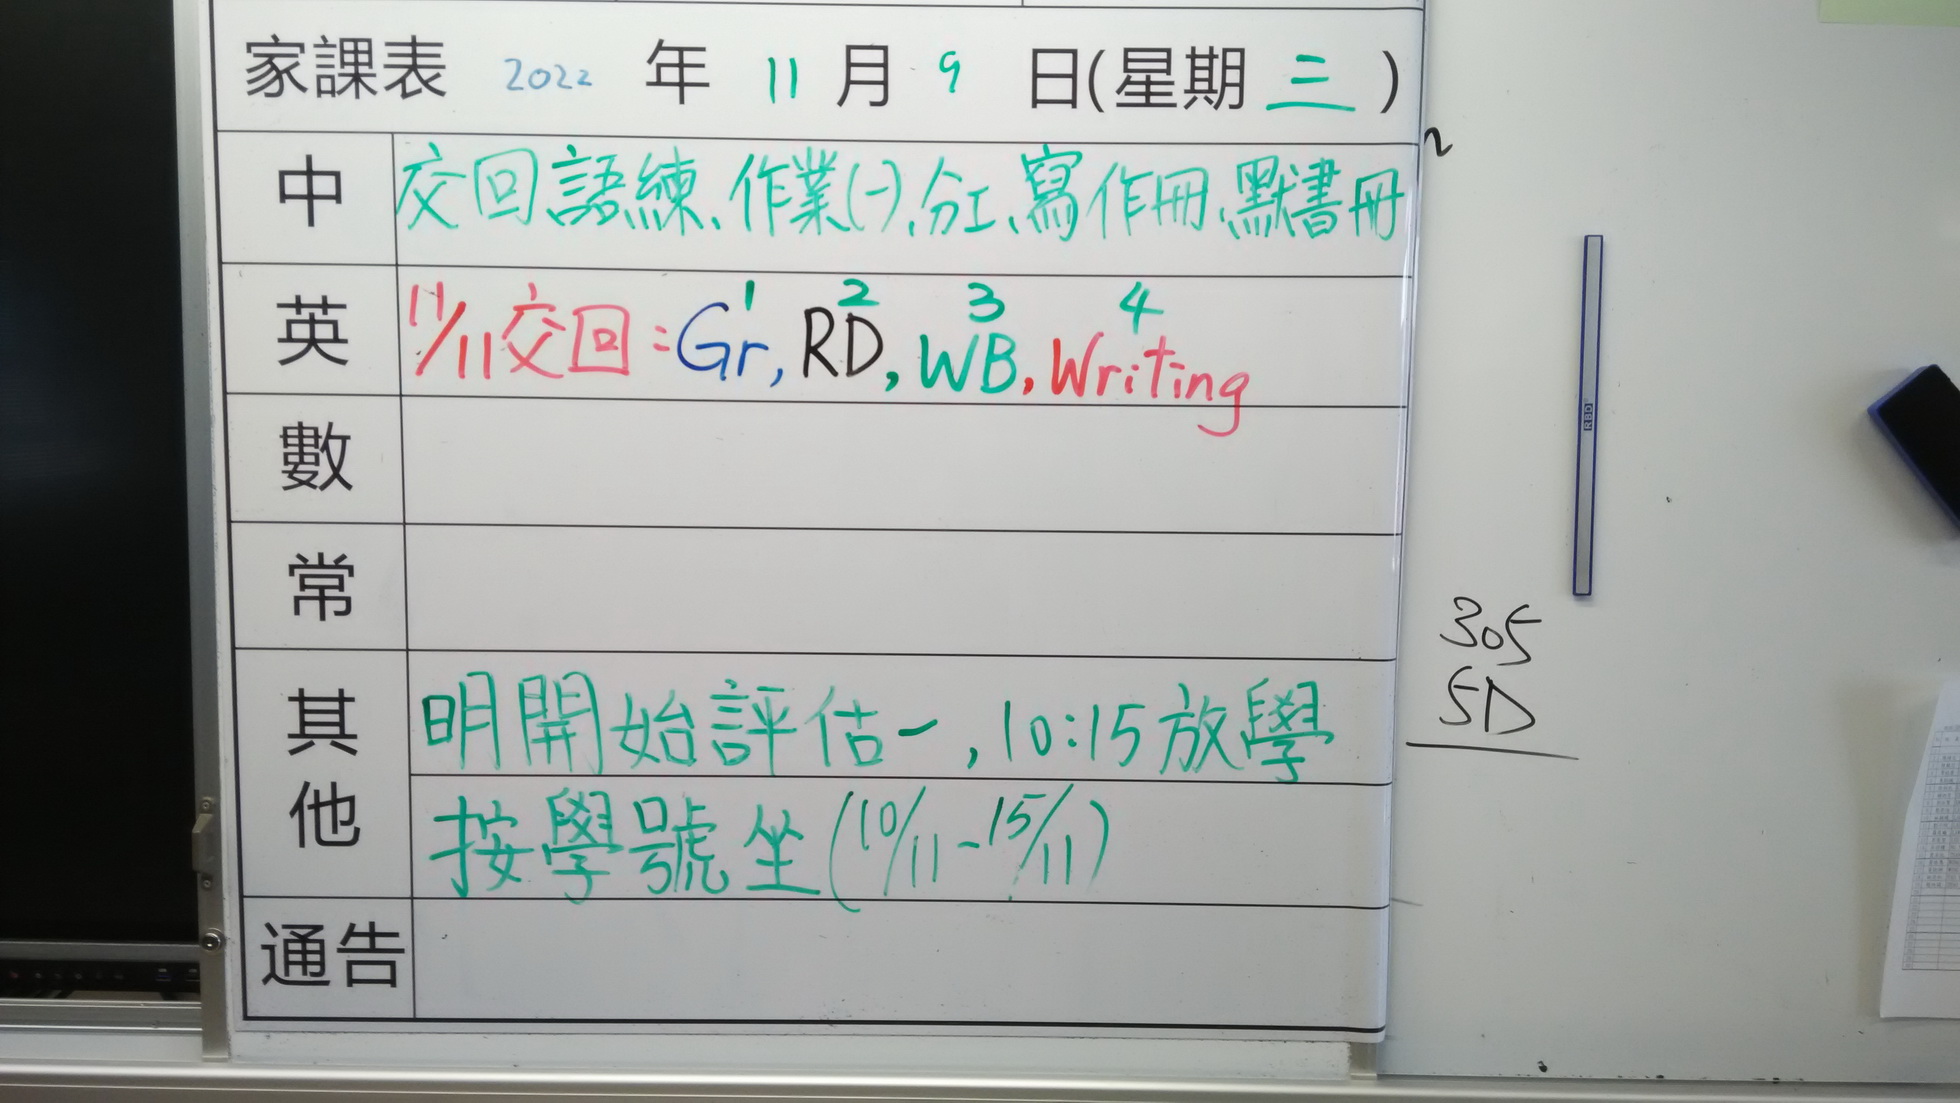 家課表 2022 年 11 月 9 日(星期 三 )
中 交回語練、作業(一)、分工、寫作冊、默書冊
1 2 3 4
英 11/11交回：Gr, RD, WB, Writing
數
常
其他
明開始評估一，10:15放學
按學號坐(10/11-15/11)
通告
RBD
305
5D